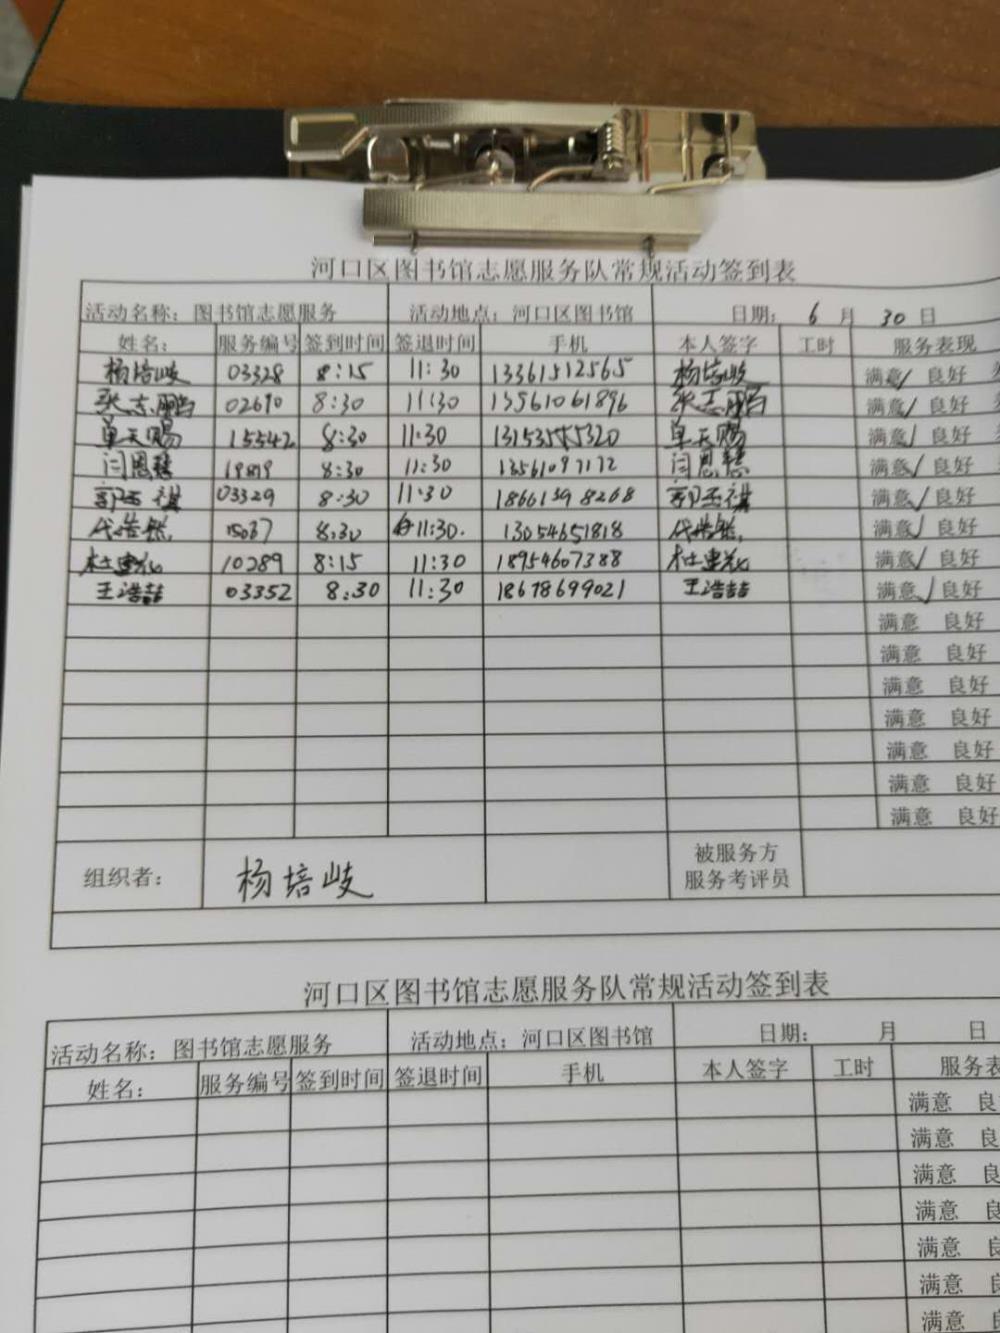 河口区图书馆志愿服务队常规活动签到表
活动名称：图书馆志愿服务 活动地点：河口区图书馆 日期： 6 月 30 日
姓名： 服务编号 签到时间 签退时间 手机 本人签字 工时 服务表现
杨培岐 03328 8:15 11:30 13361512565 杨培岐 满意 良好
张志鹏 02690 8:30 11:30 13561061896 张志鹏 满意 良好
单天赐 15542 8:30 11:30 单天赐 满意 良好
闫恩慧 8:30 11:30 13561097172 闫恩慧 满意 良好
03329 8:30 11:30 18661398268 满意 良好
代浩然 8:30 11:30. 13054651818 代浩然 满意 良好
10289 8:15 11:30 18954607388 满意 良好
王浩喆 03352 8:30 11:30 18678699021 王浩喆 满意 良好
满意 良好
满意 良好
满意 良好
满意 良好
满意 良好
满意 良好
满意 良好
组织者： 杨培岐 被服务方
服务考评员
河口区图书馆志愿服务队常规活动签到表
活动名称：图书馆志愿服务 活动地点：河口区图书馆 日期： 月 日
姓名： 服务编号 签到时间 签退时间 手机 本人签字 工时 服务表
满意 良
满意 良
满意 良
满意 良
满意 良
满意 良
满意 良